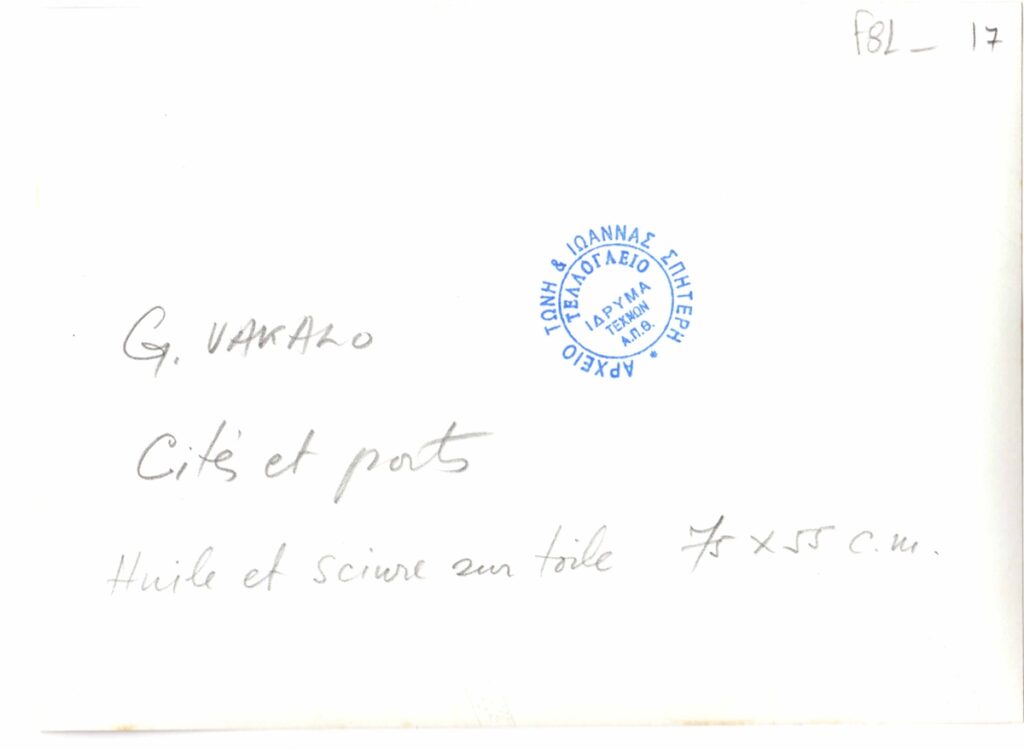 F8L_ 17
ΑΡΧΕΙΟ ΤΩΝΗ & ΙΩΑΝΝΑΣ ΣΠΗΤΕΡΗ *
ΤΕΛΛΟΓΛΕΙΟ
ΙΔΡΥΜΑ
ΤΕΧΝΩΝ
Α.Π.Θ.
G. VAKALO
Cités et ports
Huile et sciure sur toile 75 x 55 c.m.